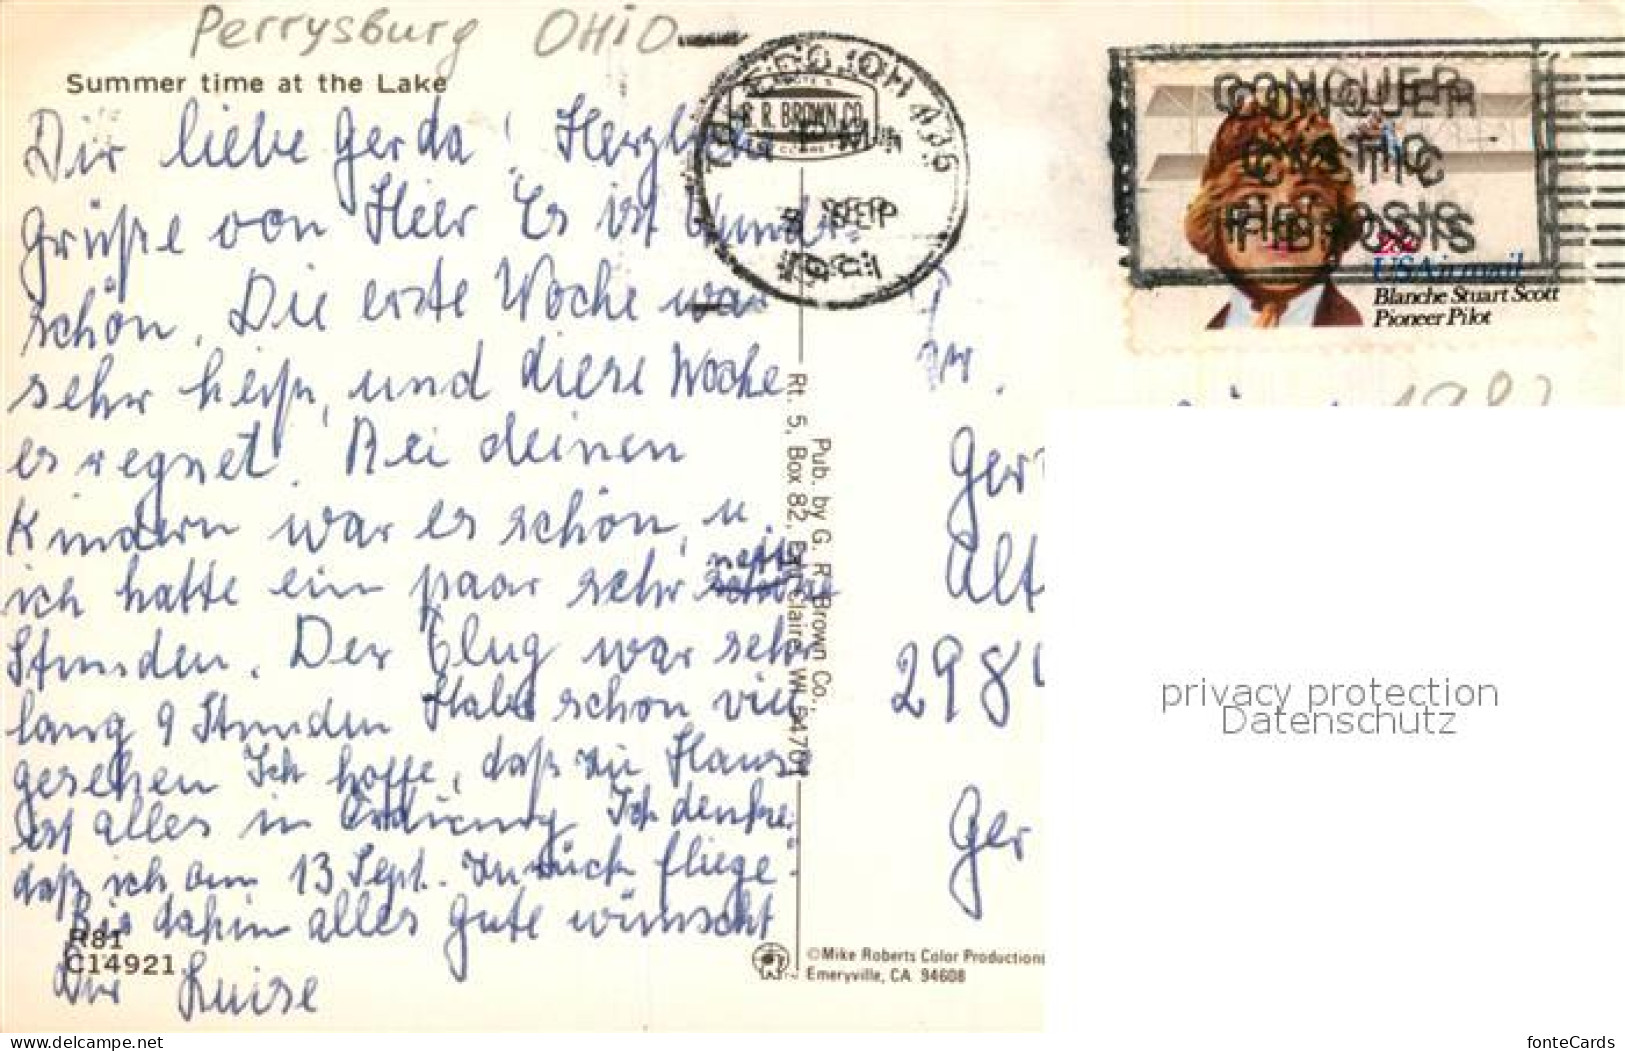 Perrysburg OHIO
Summer time at the Lake
Dir liebe Gerda! Herzliche
Grüße von Hier Es ist Wunder
schön. Die erste Woche war
sehr heiß, und diese Woche
es regnet. Bei deinen
Kindern war es schön, u.
ich hatte ein paar sehr nette
Stunden. Der Flug war sehr
lang 9 Stunden Habe schon viel
gesehen Ich hoffe, daß zu Haus
ist alles in Ordnung Ich denke
daß ich am 13 Sept. zurück fliege.
Bis dahin alles Gute wünscht
Dir Luise
R81
C14921
G. R. BROWN CO.
TOLEDO, OH 436
PM
SEP
1981
Pub. by G. R. Brown Co.,
Rt. 5, Box 82, Eau Claire, WI 54701
©Mike Roberts Color Productions
Emeryville, CA 94608
CONQUER
CYSTIC
FIBROSIS
USAirmail
Blanche Stuart Scott
Pioneer Pilot
Ger
Alt
298
Ger
privacy protection
Datenschutz
www.delcampe.net
fonteCards